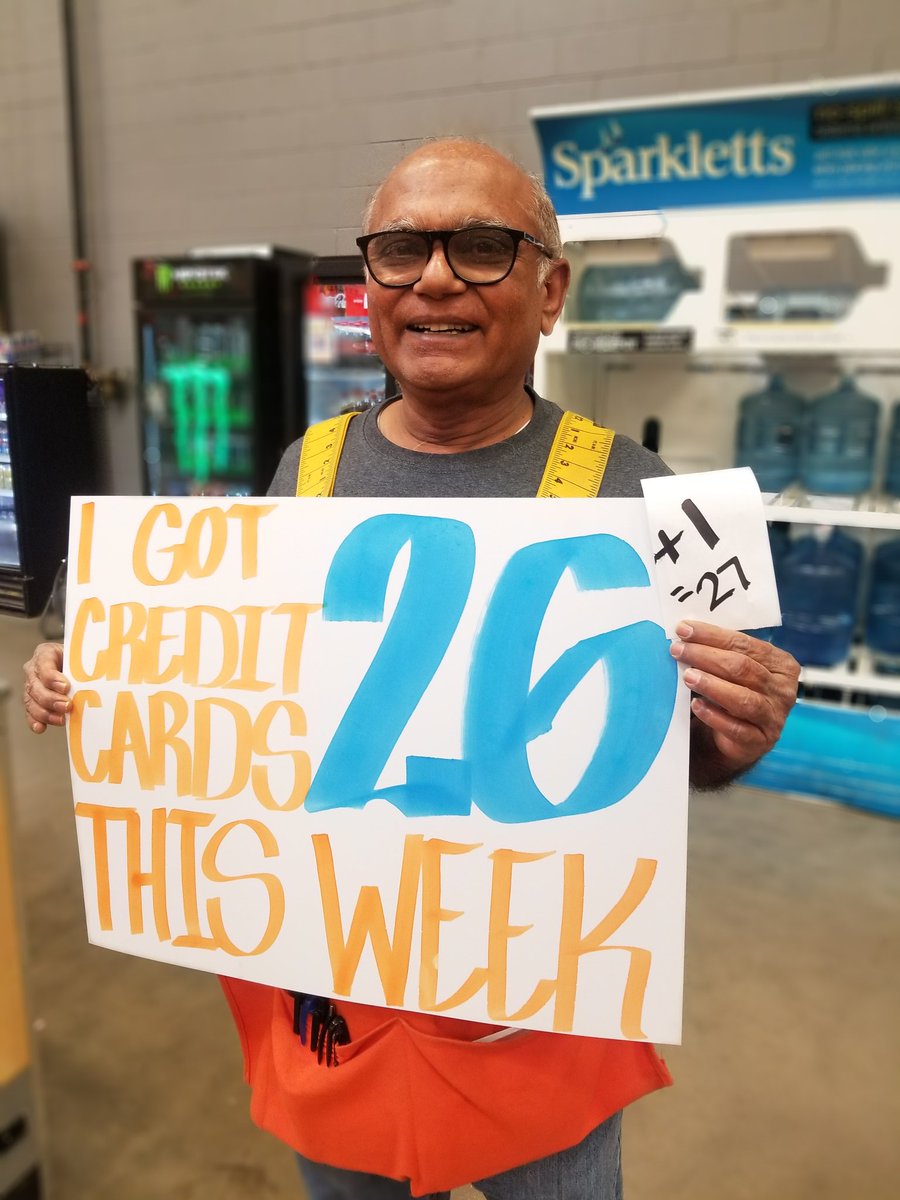 Sparkletts
I GOT
CREDIT
CARDS
26
THIS WEEK
+1
=27